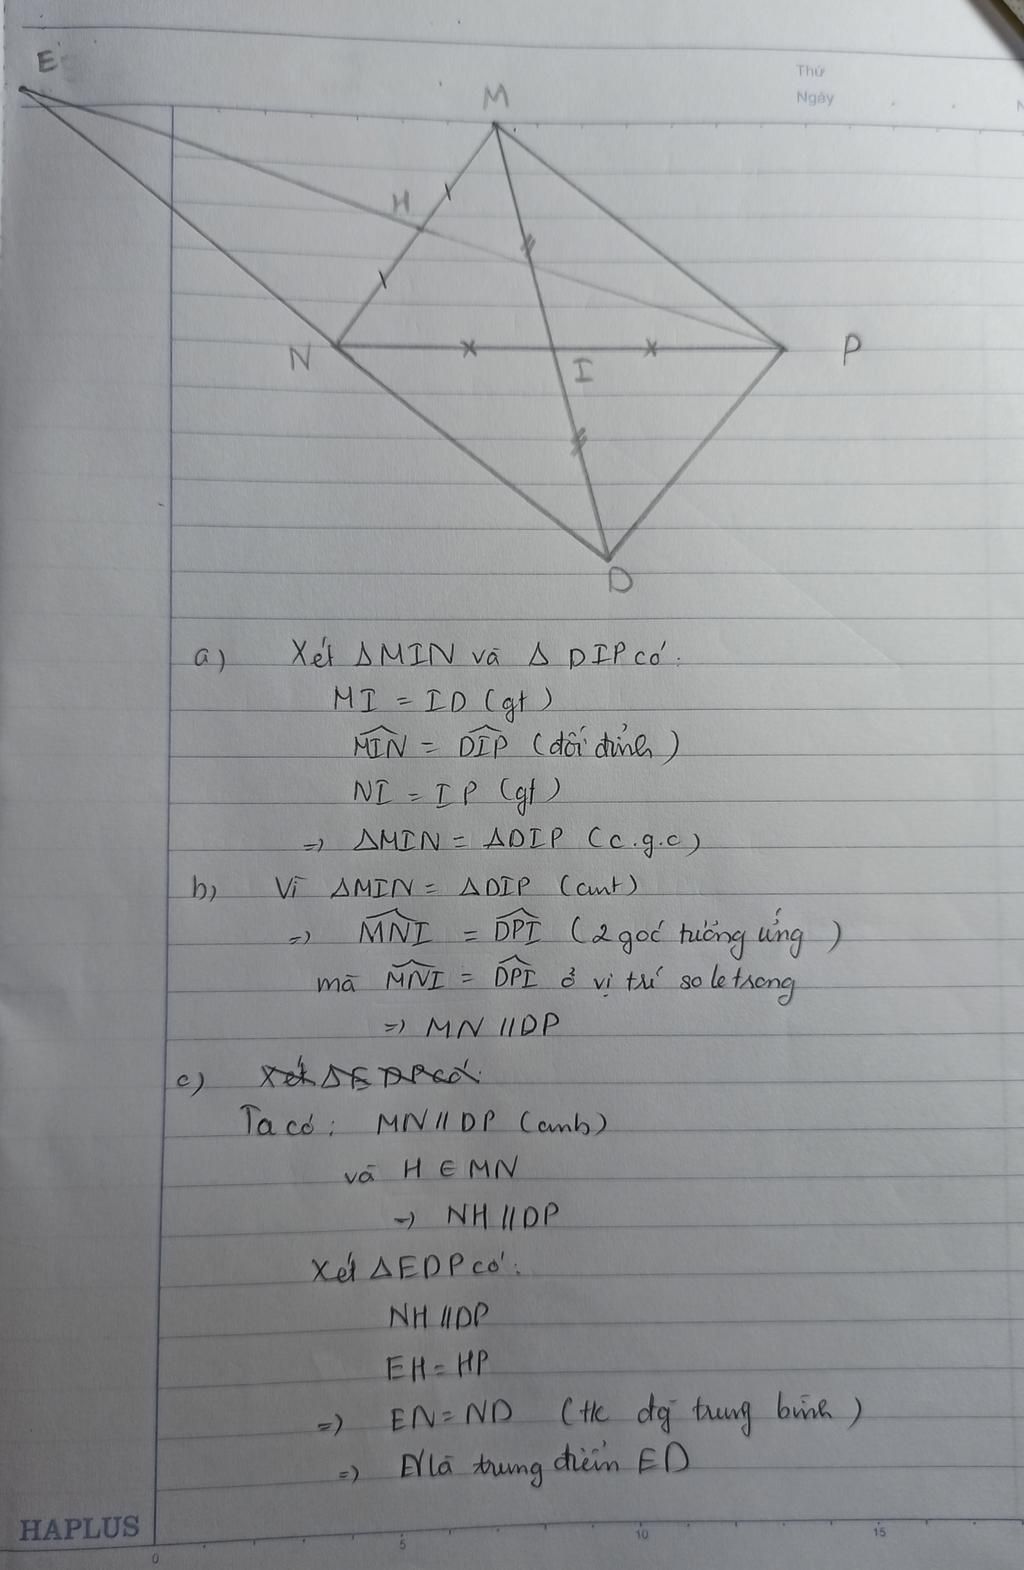 E
Thứ
M
Ngày
H
N
I
P
D
a) Xét ΔMIN và Δ DIP có:
MI = ID (gt)
\widehat{MIN} = \widehat{DIP} (đối đỉnh)
NI = IP (gt)
=> ΔMIN = ΔDIP (c.g.c)
b) Vì ΔMIN = ΔDIP (cmt)
=> \widehat{MNI} = \widehat{DPI} (2 góc tương ứng)
mà \widehat{MNI} = \widehat{DPI} ở vị trí so le trong
=> MN // DP
c) Xét ΔEDP có:
Ta có: MN // DP (cmb)
và H ∈ MN
=> NH // DP
Xét ΔEDP có:
NH // DP
EH = HP
=> EN = ND (t/c đg trung bình)
=> N là trung điểm ED
HAPLUS
0 5 10 15